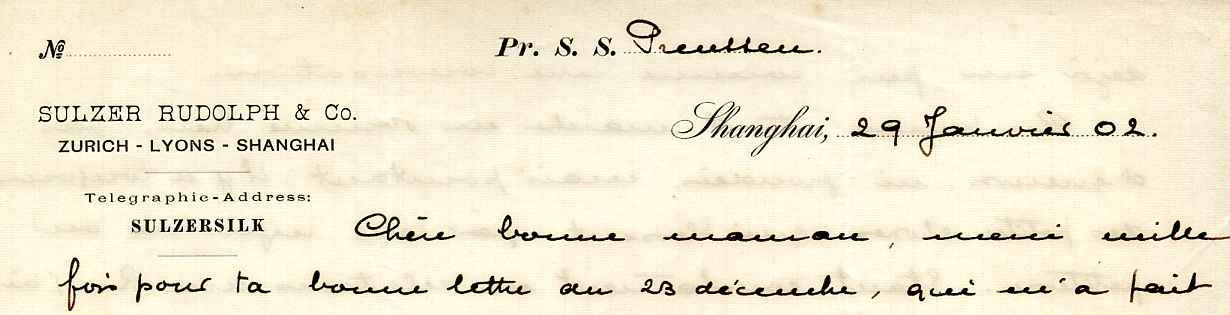 № Pr. S. S. Preussen.
SULZER RUDOLPH & Co.
ZURICH - LYONS - SHANGHAI
Shanghai, 29 Janvier 02.
Telegraphic-Address:
SULZERSILK
Chère bonne maman, merci mille
fois pour ta bonne lettre du 23 décembre, qui m'a fait